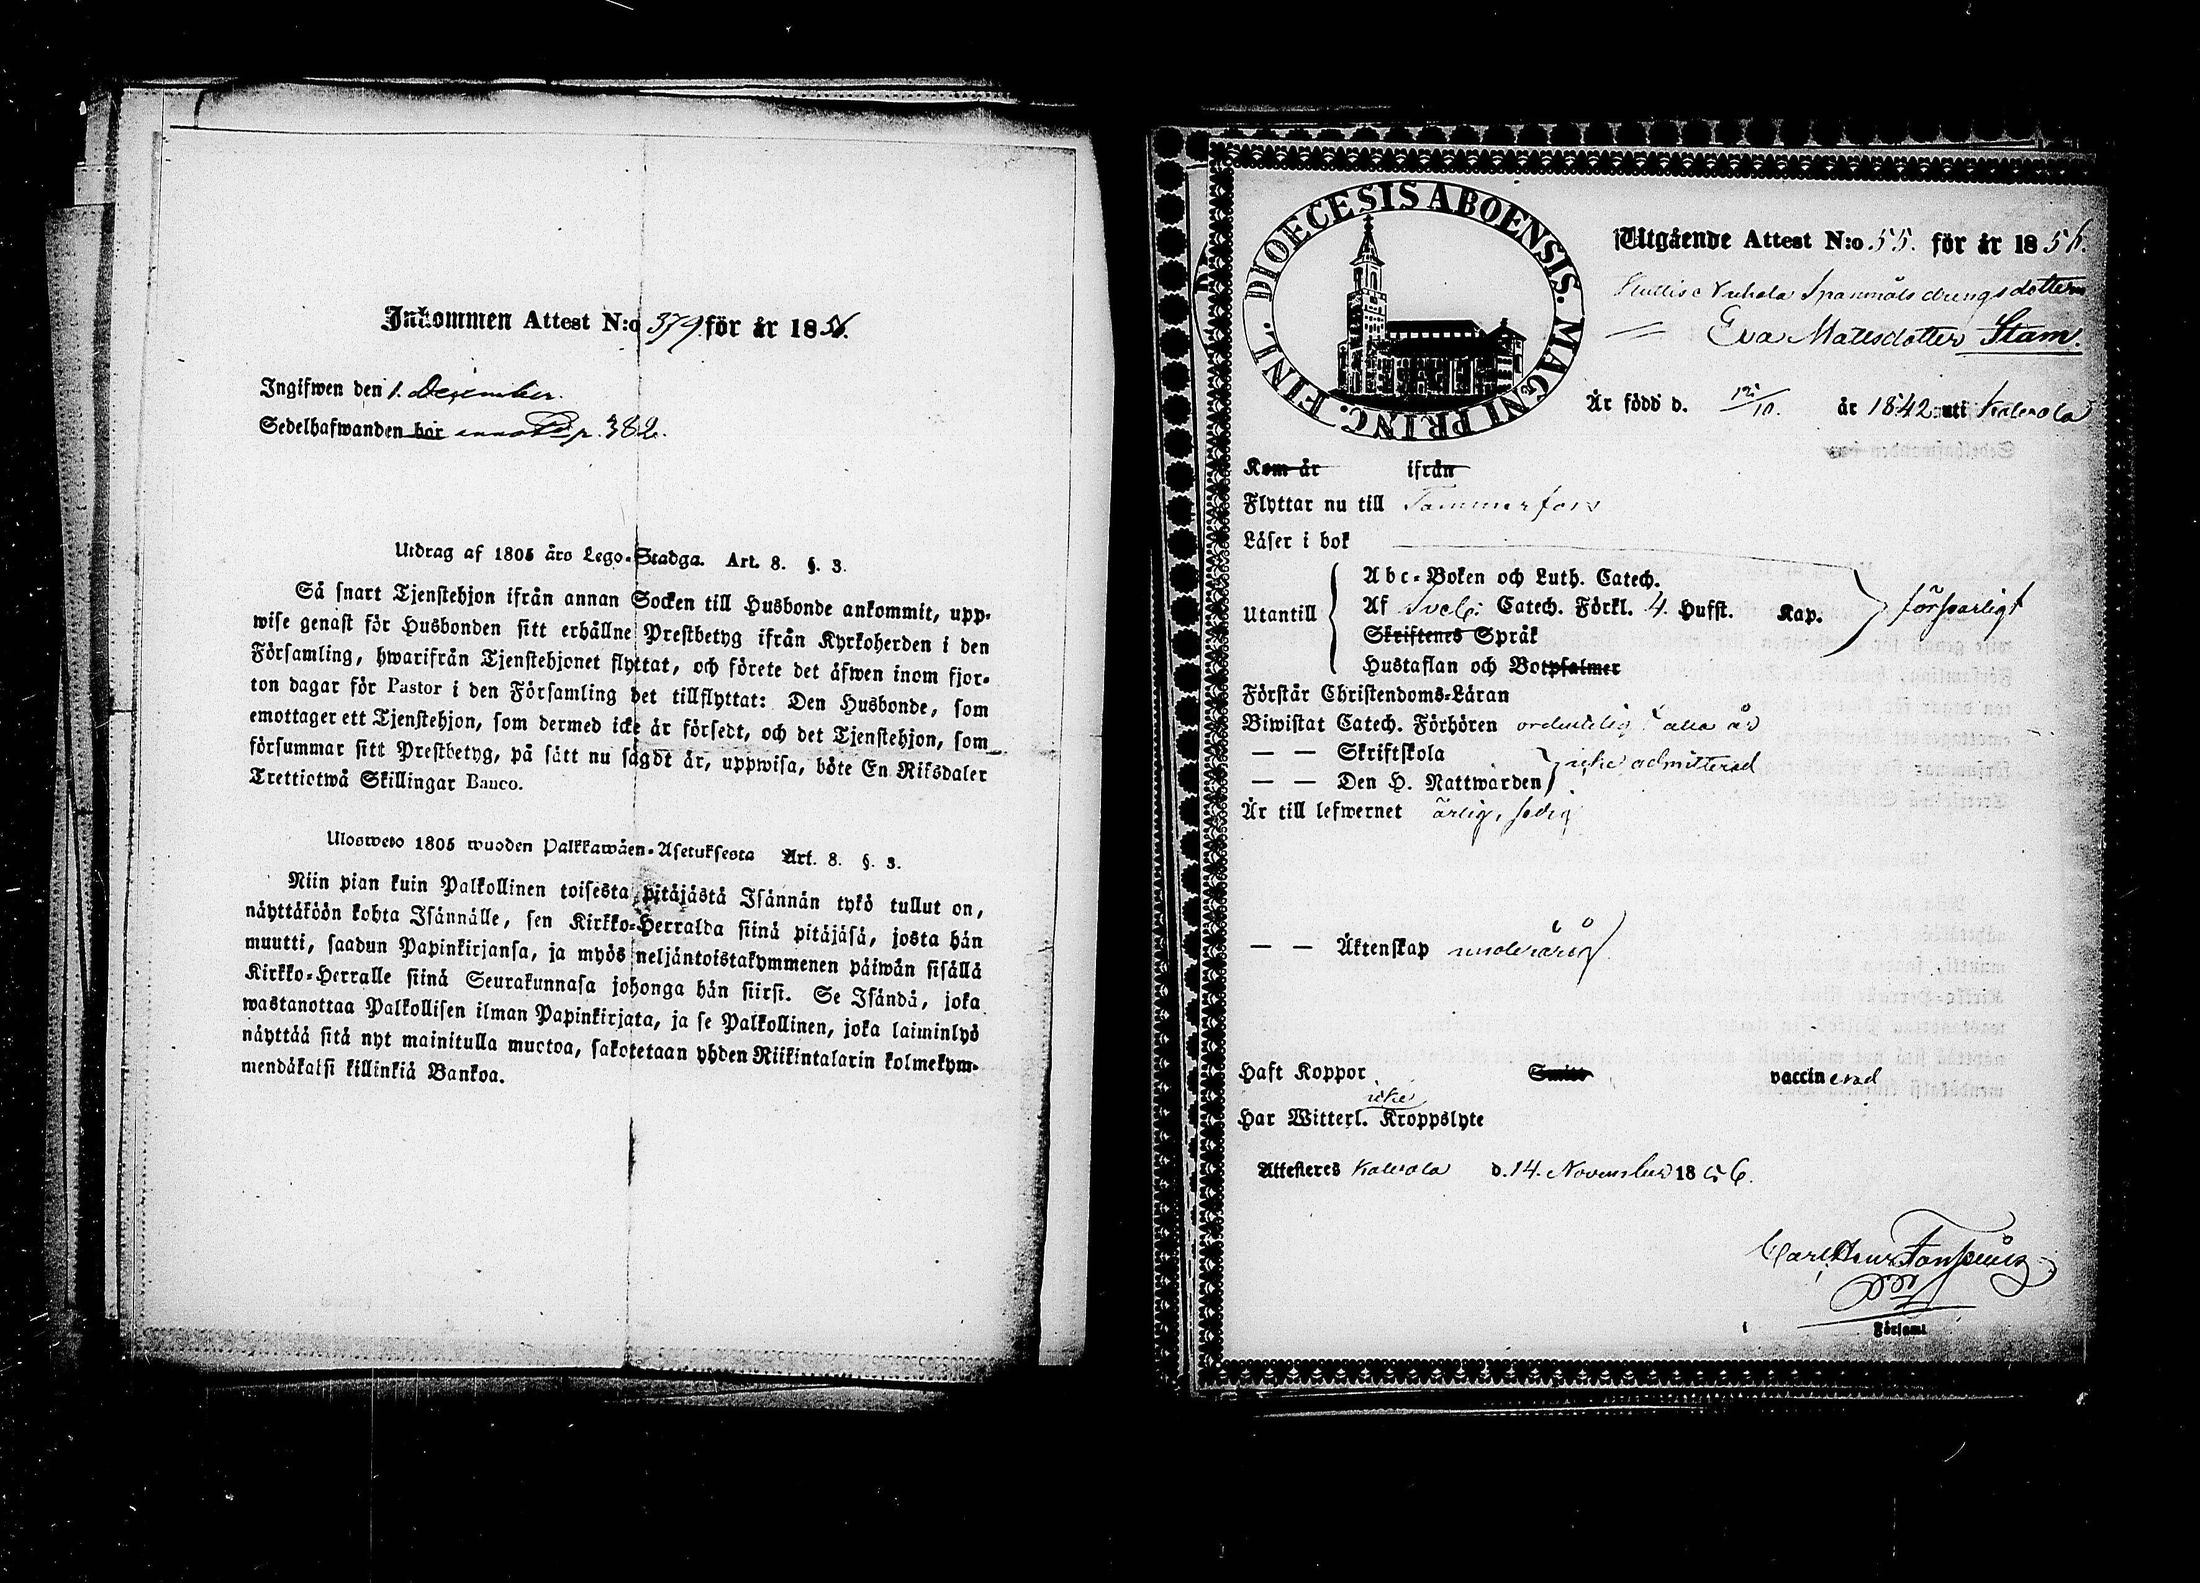 Inkommen Attest N:o 379 för år 1856.
Ingifwen den 1. December.
Sedelhafwanden bor p. 382.
Utdrag af 1805 års Lego-Stadga. Art. 8. §. 3.
Så snart Tjenstehjon ifrån annan Socken till Husbonde ankommit, upp-
wise genast för Husbonden sitt erhållne Prestbetyg ifrån Kyrkoherden i den
Församling, hwarifrån Tjenstehjonet flyttat, och förete det äfwen inom fjor-
ton dagar för Pastor i den Församling det tillflyttat: Den Husbonde, som
emottager ett Tjenstehjon, som dermed icke är försedt, och det Tjenstehjon, som
försummar sitt Prestbetyg, på sätt nu sagdt är, uppwisa, böte En Riksdaler
Trettiotwå Skillingar Banco.
Ulosweto 1805 wuoden Palkkawäen-Asetuksesta Art. 8. §. 3.
Niin pian kuin Palkollinen toisesta pitäjästä Isännän tykö tullut on,
näyttäköön kohta Isännälle, sen Kirkko-Herralda siinä pitäjäsä, josta hän
muutti, saadun Papinkirjansa, ja myös neljäntoistakymmenen päiwän sisällä
Kirkko-Herralle siinä Seurakunnasa johonga hän siirsi. Se Isändä, joka
wastanottaa Palkollisen ilman Papinkirjata, ja se Palkollinen, joka laiminlyö
näyttää sitä nyt mainitulla muotoa, sakotetaan yhden Riikintalarin kolmekym-
mendäkaksi killinkiä Bankoa.
DIOECESIS ABOENSIS. MAGNI PRINC. FINL.
Utgående Attest N:o 55. för år 1856.
Spanmåls drengs dottern
Eva Mattsdotter Stam.
Är född d. 12/10. år 1842 uti Kalvola
Kom år ifrån
Flyttar nu till Tammerfors
Läser i bok
Utantill
Abc-Boken och Luth. Catech.
Af Sveb: Catech. Förkl. 4. Hufst. Kap.
Skriftenes Språk
Hustaflan och Botpsalmer
försvarligt
Förstår Christendoms-Läran
Biwistat Catech. Förhören ordentelig alla år
— — Skriftskola
— — Den H. Nattwarden
icke admitterad
Är till lefwernet ärlig, sedig
— — Äktenskap underårig
Haft Koppor vaccinerad
icke
Har Witterl. Kroppslyte
Attesteres Kalvola d. 14. November 1856.
Carl
Församl